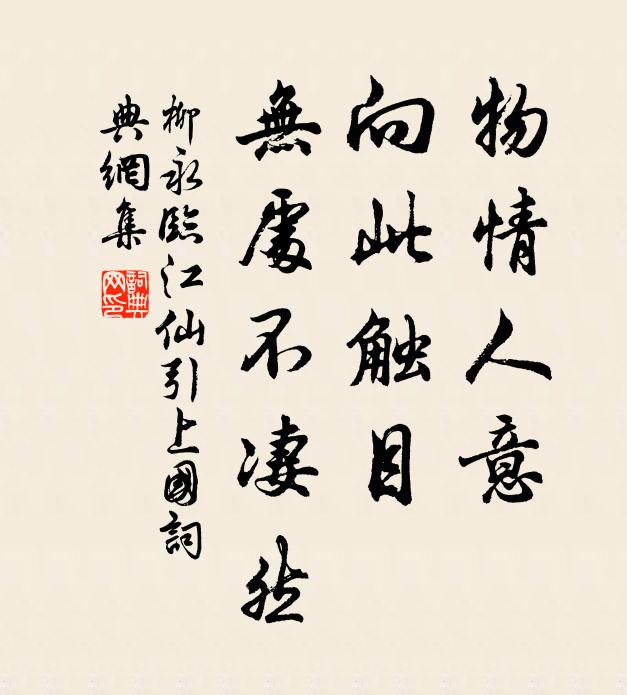 物情人意
向此触目
無處不凄然
柳永臨江仙引上國詞
典網集
詞典网印